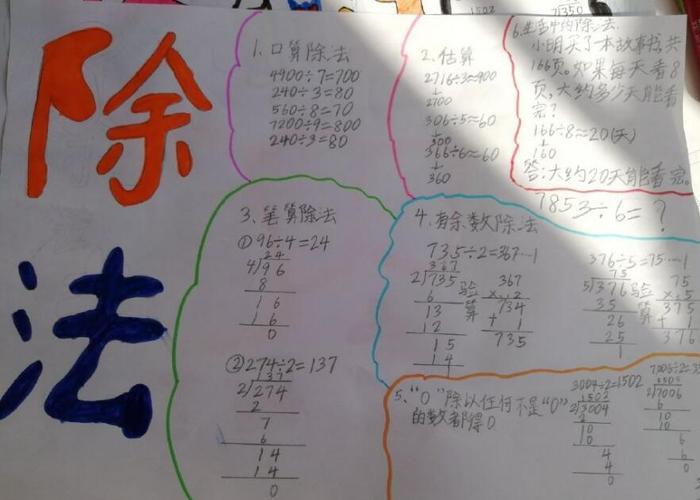 除
法
1.口算除法
4900÷7=700
240÷3=80
560÷8=70
7200÷9=800
240÷3=80
2.估算
2716÷3≈900
2700
306÷5≈60
300
366÷6≈60
360
6.生活中的除法:
小明买了本故事书,共
166页。如果每天看8
页,大约多少天能看
完?
166÷8≈20(天)
160
答:大约20天能看完。
7853÷6=?
3、笔算除法
①96÷4=24
24
4/96
8
16
16
0
②274÷2=137
137
2/274
2
7
6
14
14
0
4.有余数除法
735÷2=367…1
367
2/735
6
13
12
15
14
1
验算
367
×2
734
+1
735
376÷5=75…1
75
5/376
35
26
25
1
验算
75
×5
375
+1
376
5、“0”除以任何不是“0”
的数都得0
3004÷2=1502
1502
2/3004
2
10
10
4
4
0
2/7006
6
10
10
6
6
0